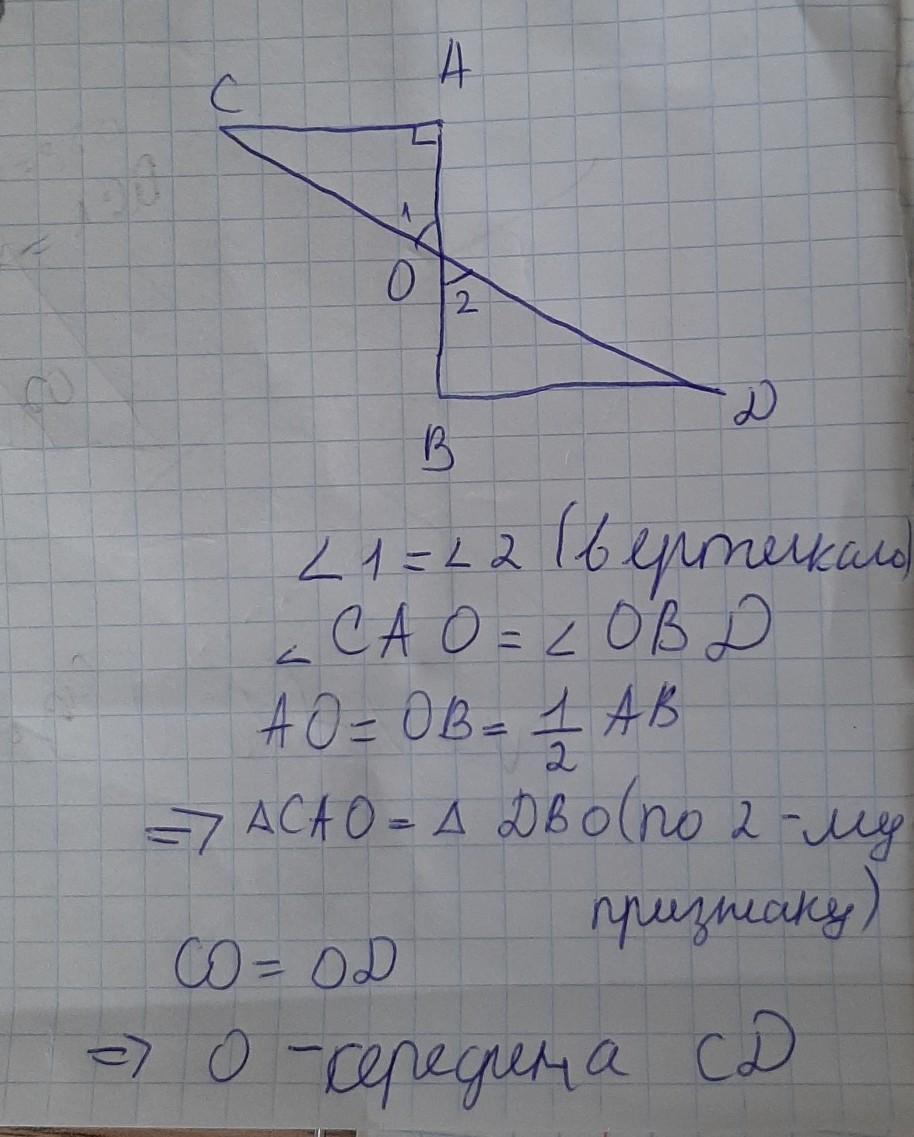 A
C
1
O
2
D
B
∠1=∠2 (вертикаль)
∠CAO=∠OBD
AO=OB=1/2 AB
=> ΔCAO=Δ DBO(по 2-му
признаку)
CO=OD
=> O -середина CD